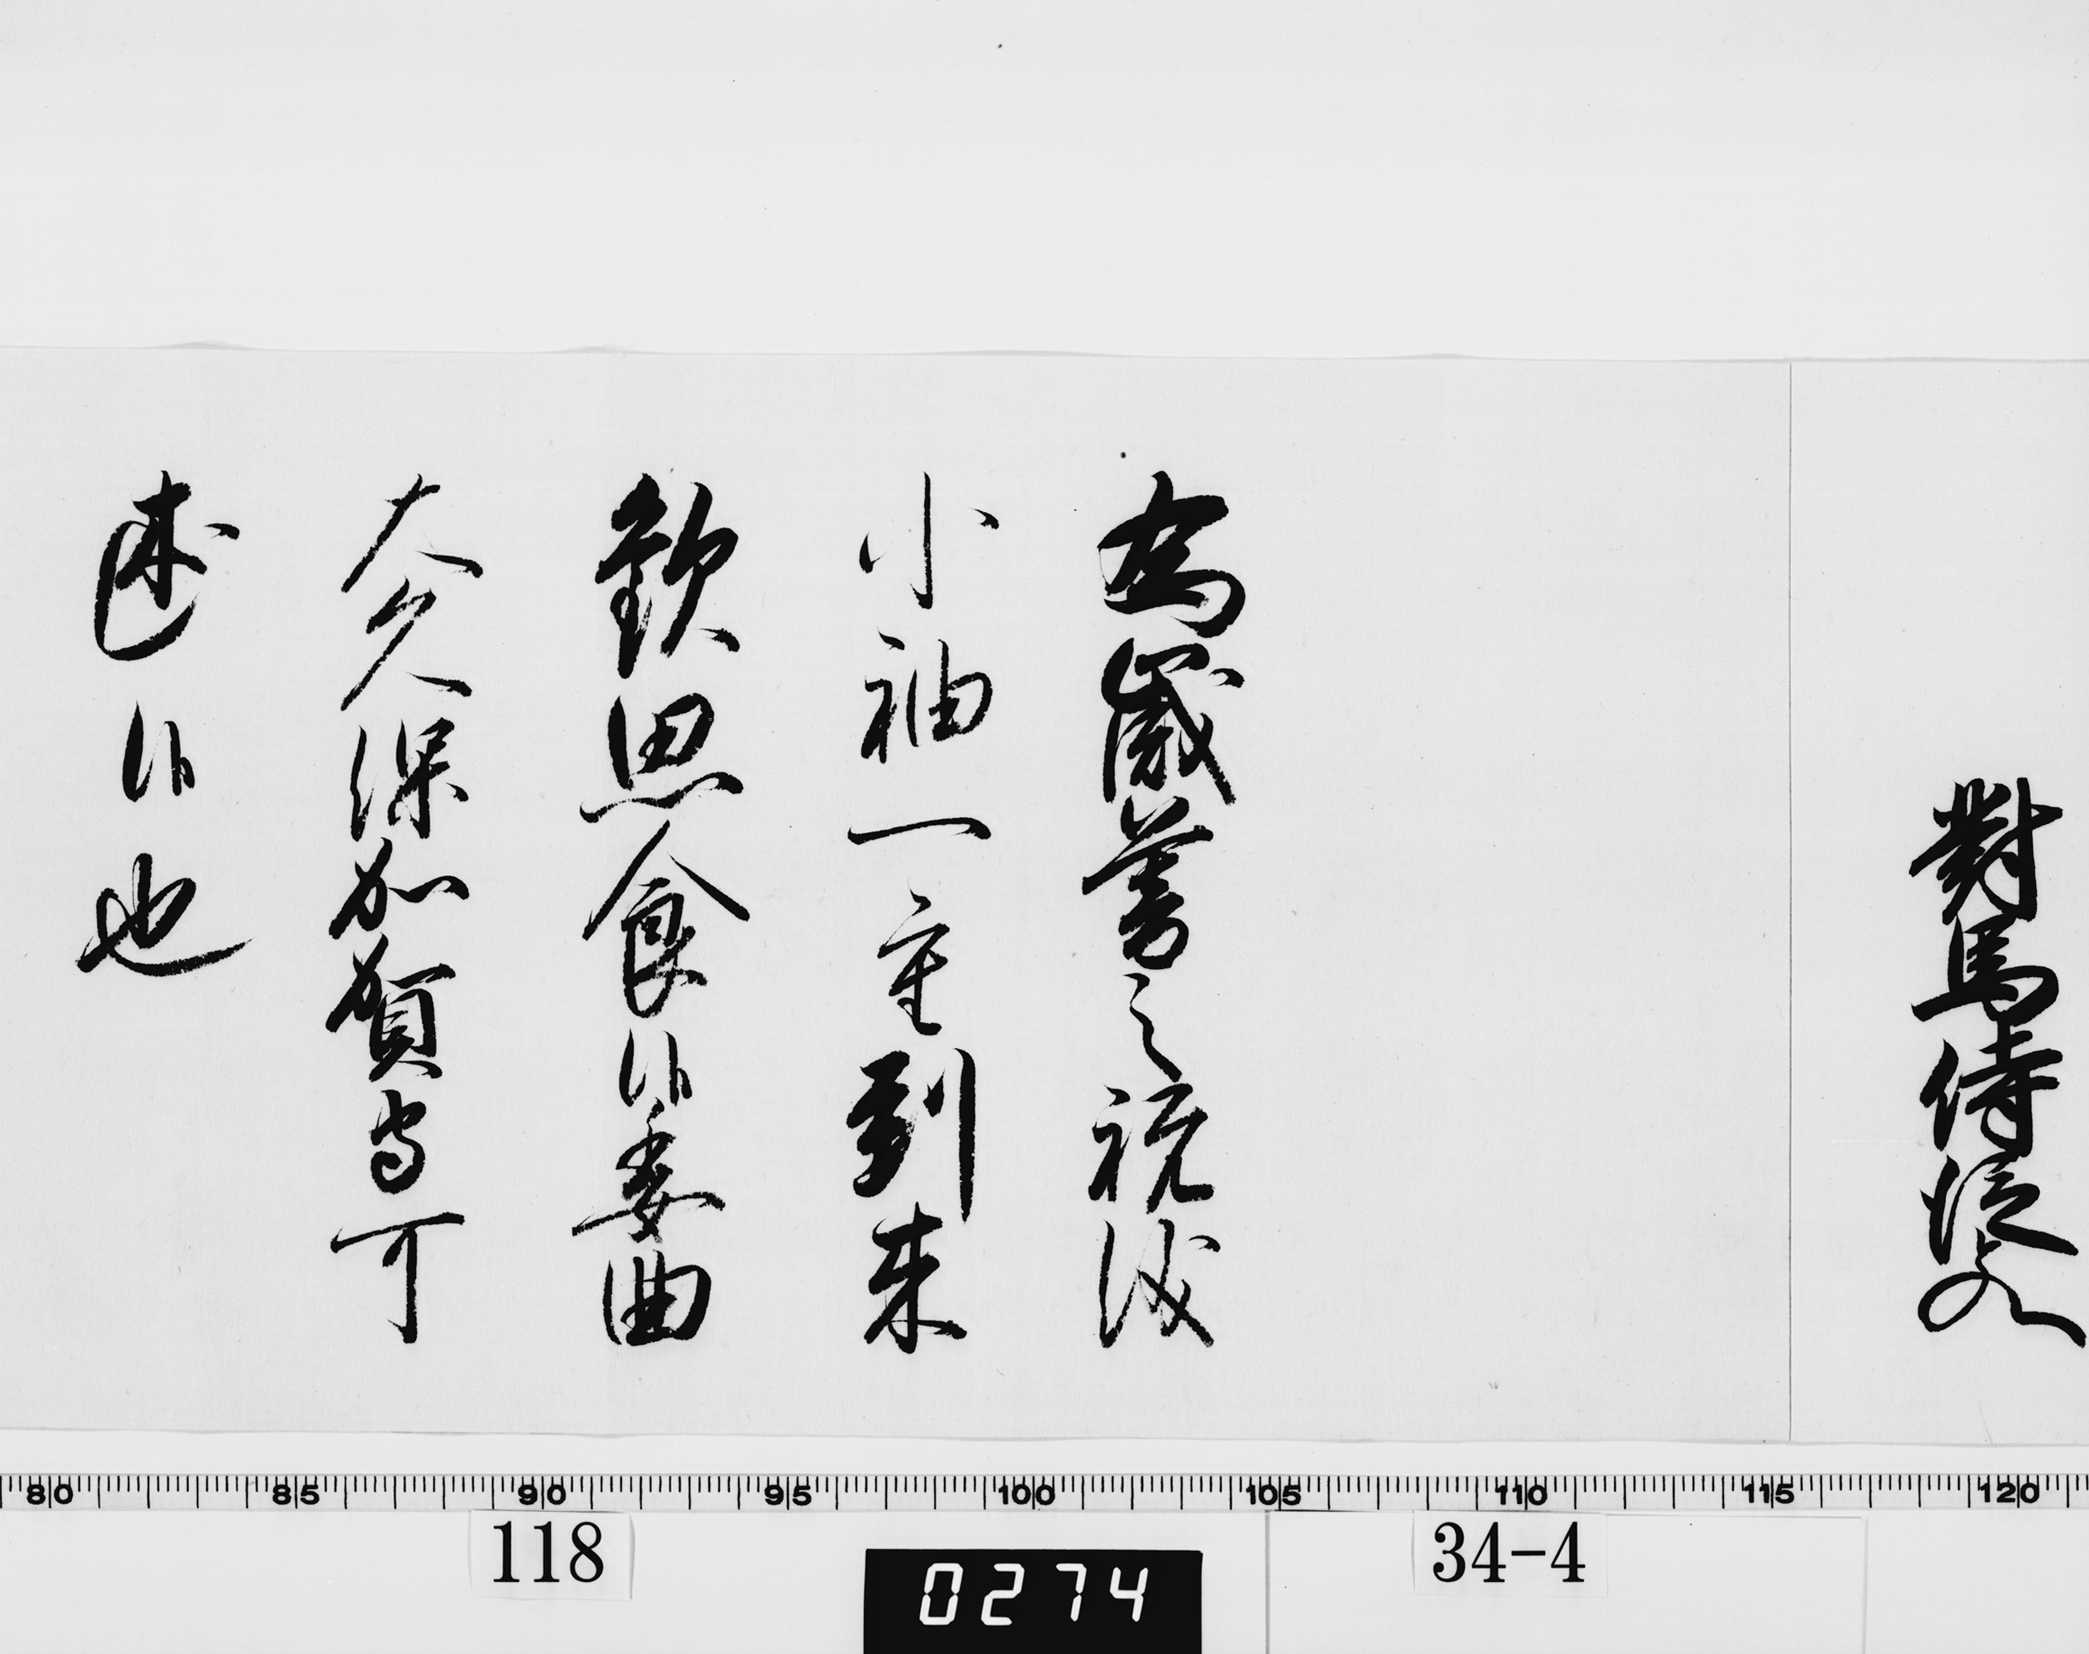 對馬侍従殿
為歳暮之祝儀
小袖一重到来
歓思食候委曲
大久保加賀守可
述候也
80 85 90 95 100 105 110 115 120
118
0274
34-4